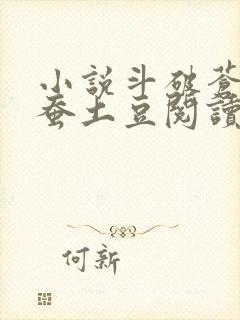 小說斗破蒼
蚕土豆閱讀
何新